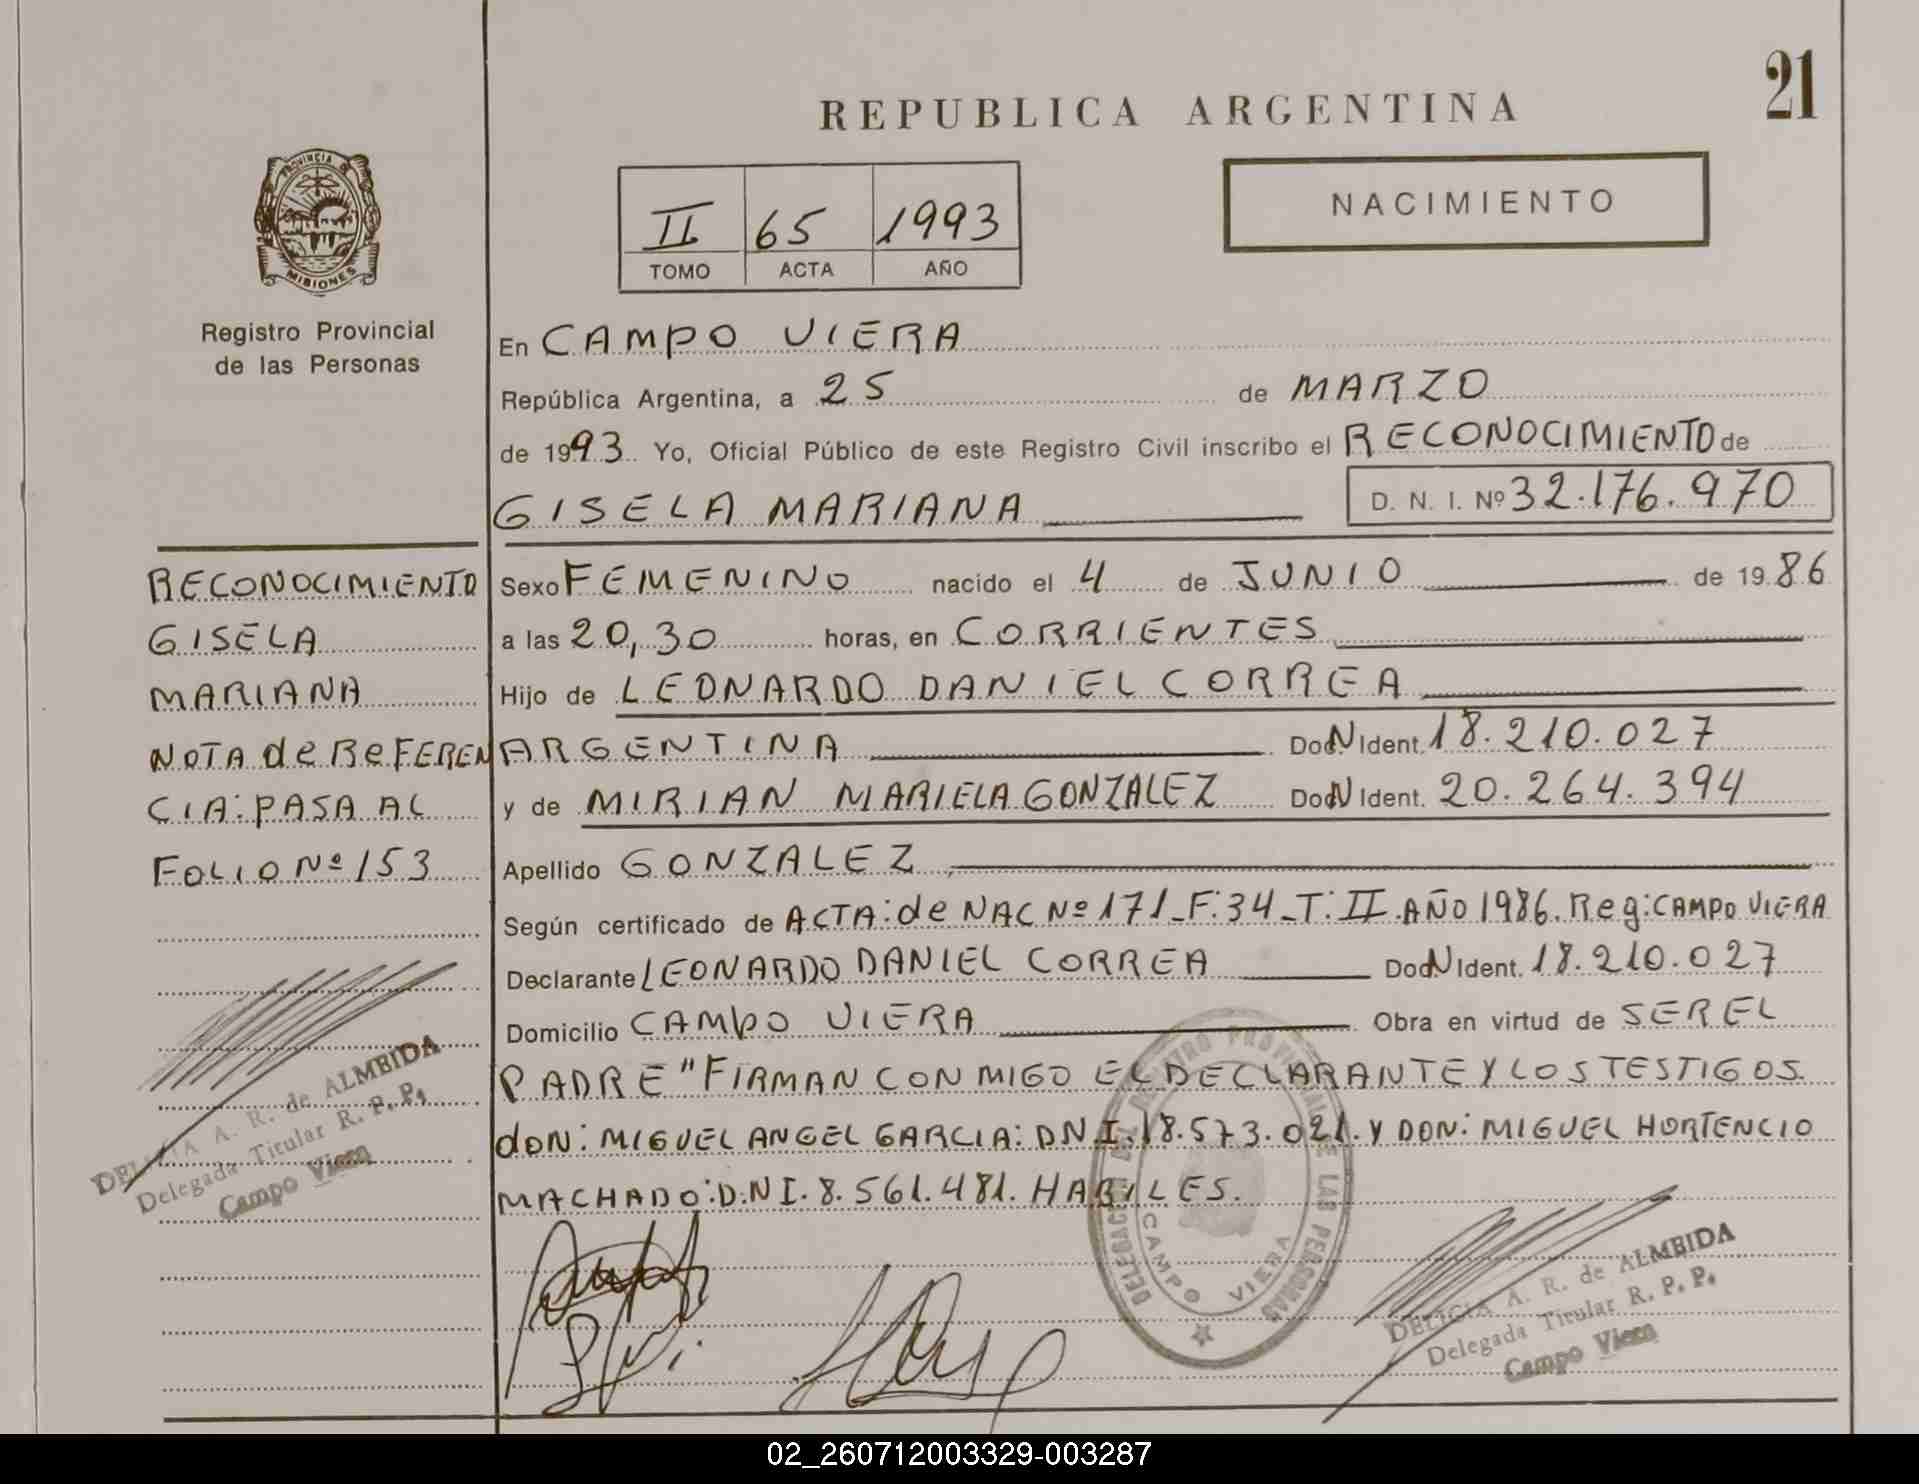 21
REPUBLICA ARGENTINA
NACIMIENTO
PROVINCIA DE
MISIONES
II 65 1993
TOMO ACTA AÑO
Registro Provincial
de las Personas
En CAMPO VIERA
República Argentina, a 25 de MARZO
de 1993 Yo, Oficial Público de este Registro Civil inscribo el RECONOCIMIENTO de
GISELA MARIANA D. N. I. Nº 32.176.970
RECONOCIMIENTO
GISELA
MARIANA
NOTA de REFEREN
CIA: PASA AL
FOLIO Nº 153
Sexo FEMENINO nacido el 4 de JUNIO de 1986
a las 20,30 horas, en CORRIENTES
Hijo de LEONARDO DANIEL CORREA
ARGENTINA Doc. N Ident. 18.210.027
y de MIRIAN MARIELA GONZALEZ Doc. N Ident. 20.264.394
Apellido GONZALEZ
Según certificado de ACTA: de NAC Nº 171_F:34_T: II AÑO 1986. Reg: CAMPO VIERA
Declarante LEONARDO DANIEL CORREA Doc. N Ident. 18.210.027
Domicilio CAMPO VIERA Obra en virtud de SER EL
PADRE "FIRMAN CONMIGO EL DECLARANTE Y LOS TESTIGOS
DON: MIGUEL ANGEL GARCIA: DN.I. 18.573.021. Y DON: MIGUEL HORTENCIO
MACHADO: D.N I. 8.561.481. HABILES.
DELICIA A. R. de ALMEIDA
Delegada Titular R. P. P.
Campo Viera
DELEGACION DEL REGISTRO PROVINCIAL DE LAS PERSONAS
CAMPO VIERA
DELICIA A. R. de ALMEIDA
Delegada Titular R. P. P.
Campo Viera
02_260712003329-003287